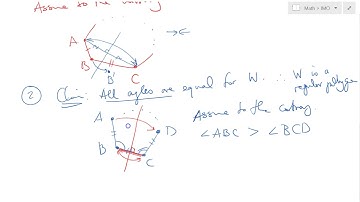 Assume to the contrary
A
B
B'
C
→←
Math > IMO
② Claim: All angles are equal for W. ∴ W is a
regular polygon
A
O
D
B
C
Assume to the contrary
∠ABC > ∠BCD